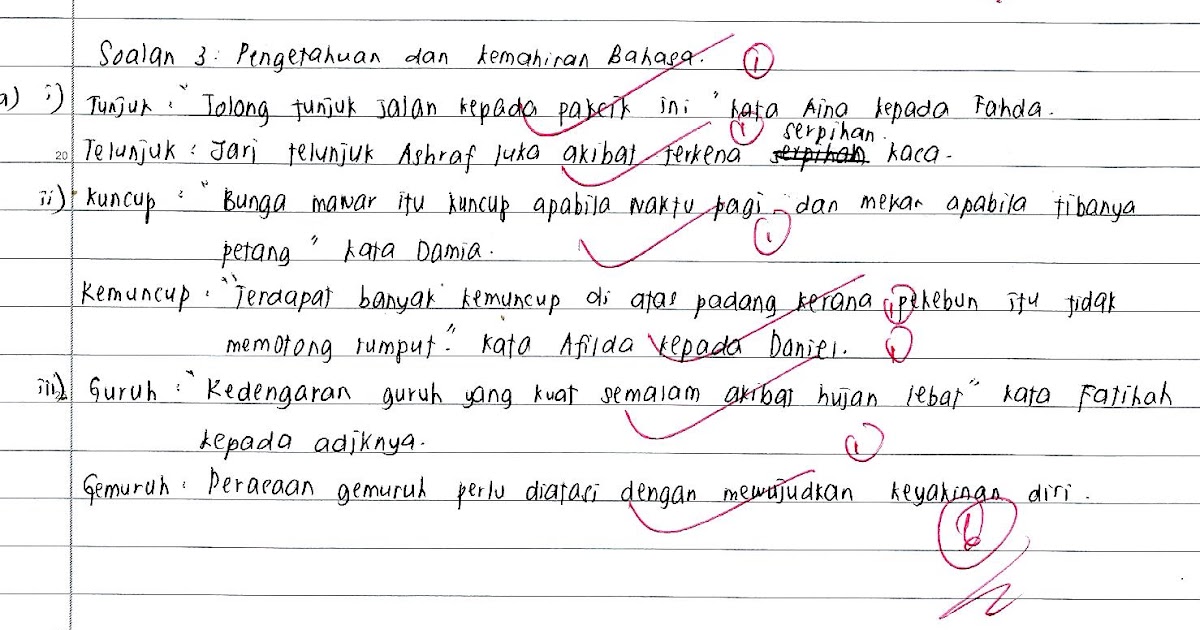 Soalan 3: Pengetahuan dan kemahiran Bahasa. 1
a) i) Tunjuk : "Tolong tunjuk jalan kepada pakcik ini" kata Aina kepada Fahda.
1 serpihan.
20 Telunjuk : Jari telunjuk Ashraf luka akibat terkena serpihan kaca.
ii) Kuncup : "Bunga mawar itu kuncup apabila waktu pagi dan mekar apabila tibanya
petang" kata Damia. 1
Kemuncup : "Terdapat banyak kemuncup di atas padang kerana pekebun itu tidak 1
memotong rumput." kata Afilda kepada Daniel. 1
iii) Guruh : "Kedengaran guruh yang kuat semalam akibat hujan lebat" kata Fatihah
kepada adiknya. 1
Gemuruh : Peracaan gemuruh perlu diatasi dengan mewujudkan keyakinan diri.
6